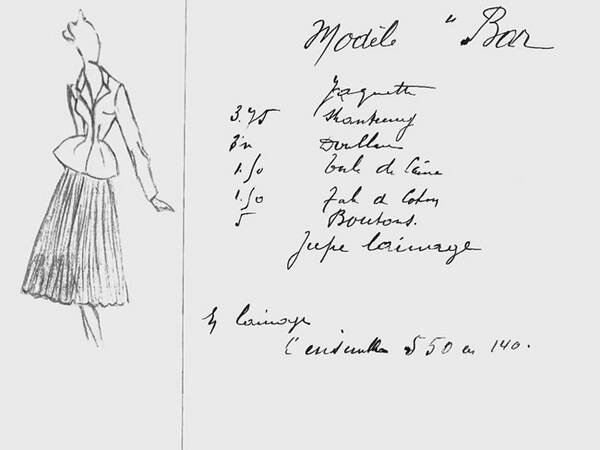 Modèle "Bar
Jaquette
3.75 Shantung
3m Doublure
1.50 toile de laine
1.50 Toile de Coton
5 Boutons.
Jupe lainage
En lainage
l'ensemble 5 50 en 140.